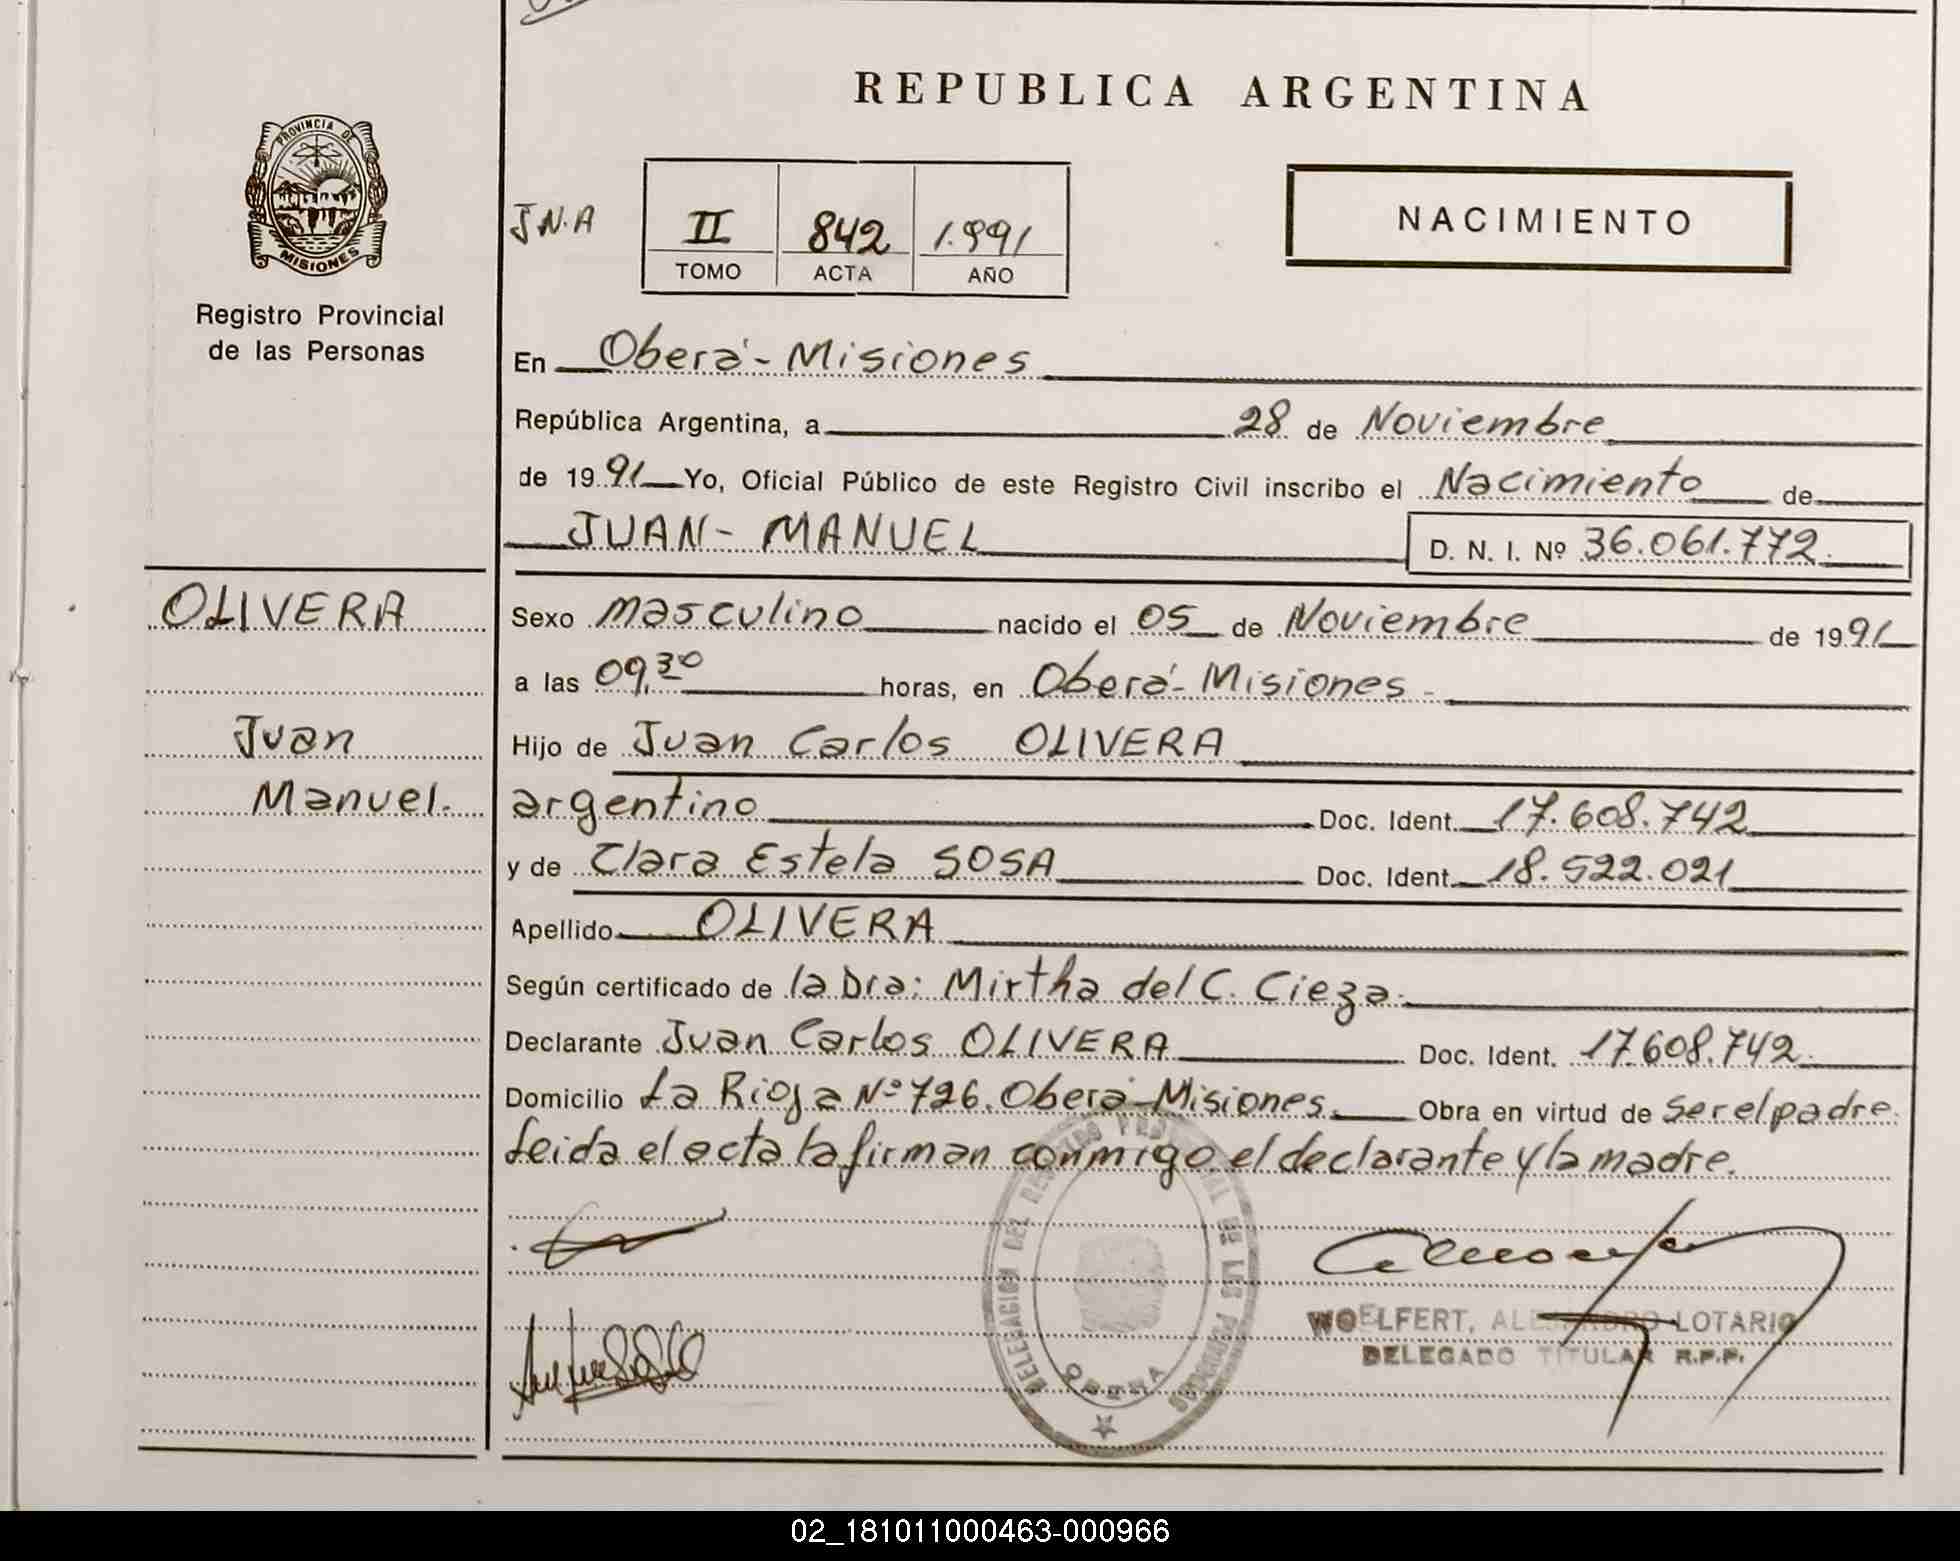 REPUBLICA ARGENTINA
PROVINCIA DE
MISIONES
Registro Provincial
de las Personas
J.N.A
II 842 1.991
TOMO ACTA AÑO
NACIMIENTO
En Oberá - Misiones
República Argentina, a 28 de Noviembre
de 19 91 Yo, Oficial Público de este Registro Civil inscribo el Nacimiento de
JUAN - MANUEL D. N. I. Nº 36.061.772.
OLIVERA
Juan
Manuel.
Sexo masculino nacido el 05 de Noviembre de 19 91
a las 09,30 horas, en Oberá - Misiones -
Hijo de Juan Carlos OLIVERA
argentino Doc. Ident. 17.608.742
y de Clara Estela SOSA Doc. Ident. 18.522.021
Apellido OLIVERA
Según certificado de la Dra: Mirtha del C. Cieza.
Declarante Juan Carlos OLIVERA Doc. Ident. 17.608.742.
Domicilio La Rioja Nº 726. Oberá - Misiones. Obra en virtud de ser el padre.
Leida el acta la firman conmigo el declarante y la madre.
DELEGACION DEL REGISTRO PROVINCIAL DE LAS PERSONAS
OBERA
WOELFERT, ALEJANDRO LOTARIO
DELEGADO TITULAR R.P.P.
02_181011000463-000966